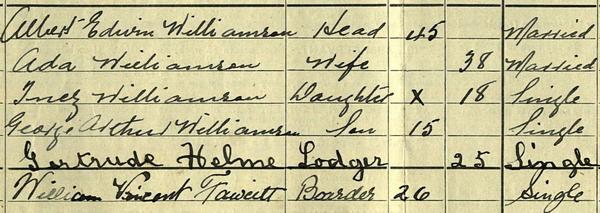 Albert Edwin Williamson Head 45 Married
Ada Williamson Wife 38 Married
Inez Williamson Daughter X 18 Single
George Arthur Williamson Son 15 Single
Gertrude Helme Lodger 25 Single
William Vincent Fawcitt Boarder 26 Single